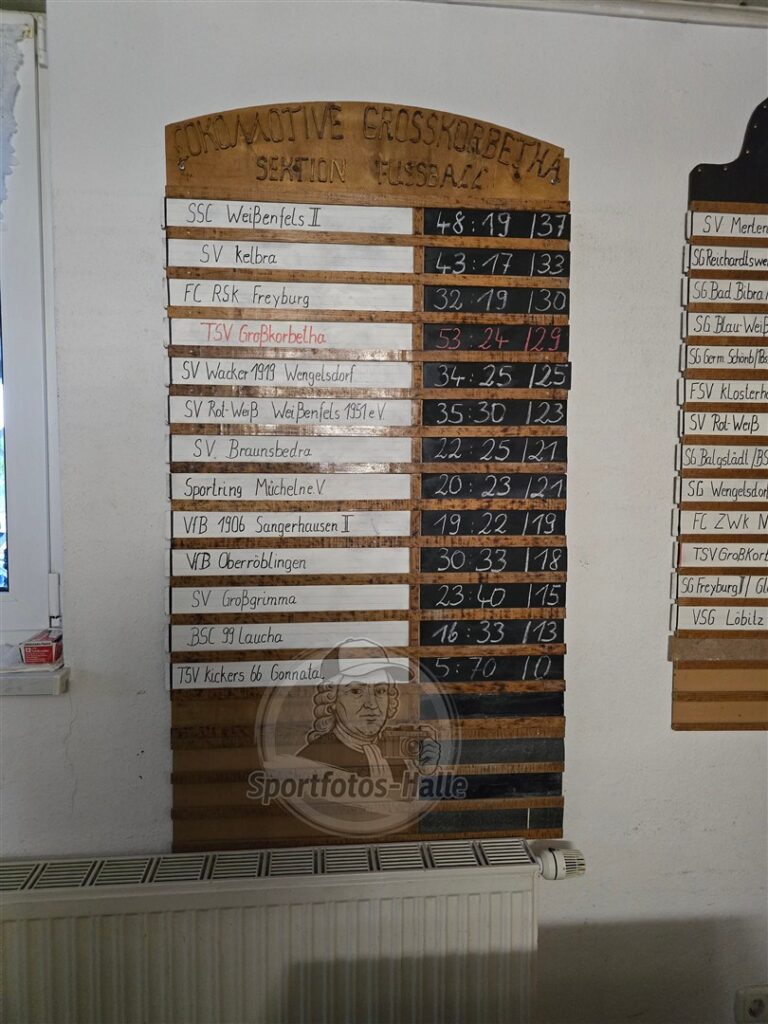 LOKOMOTIVE GROSSKORBETHA
SEKTION FUSSBALL
SSC Weißenfels II 48:19 /37
SV Kelbra 43:17 /33
FC RSK Freyburg 32:19 /30
TSV Großkorbetha 53:24 /29
SV Wacker 1919 Wengelsdorf 34:25 /25
SV Rot-Weiß Weißenfels 1951 e.V. 35:30 /23
SV. Braunsbedra 22:25 /21
Sportring Mücheln e.V. 20:23 /21
VfB 1906 Sangerhausen II 19:22 /19
VfB Oberröblingen 30:33 /18
SV Großgrimma 23:40 /15
BSC 99 Laucha 16:33 /13
TSV Kickers 66 Gonnatal 5:70 /0
Sportfotos-Halle
SV Merten
SG Reichardtswe
SG Bad Bibra/
SG Blau-Weiß
SG Germ. Schönb/
FSV Klosterhä
SV Rot-Weiß
SG Balgstädt/BS
SG Wengelsdorf
FC ZWK N
TSV Großkorb
SG Freyburg II/ Gl
VSG Löbitz